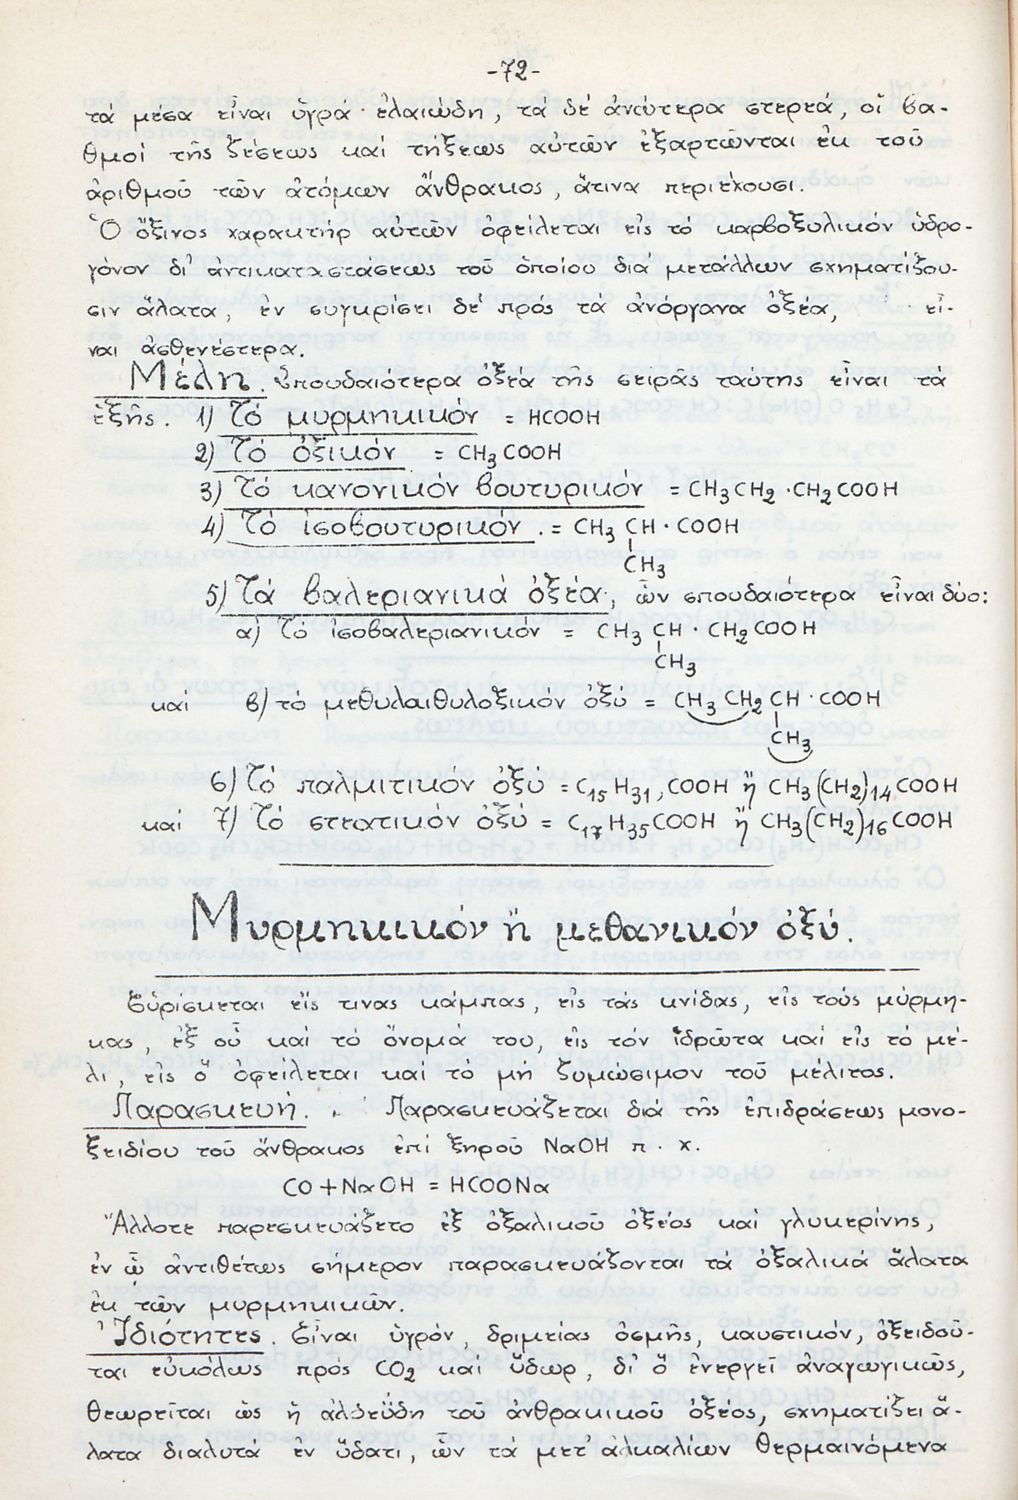 -72-
τά μέσα εἶναι ὑγρά ἐλαιώδη, τά δέ ἀνώτερα στερεά, οἱ βα-
θμοί τῆς ζέσεως καί τήξεως αὐτῶν ἐξαρτῶνται ἐκ τοῦ
ἀριθμοῦ τῶν ἀτόμων ἄνθρακος, ἅτινα περιέχουσι.
Ὁ ὄξινος χαρακτήρ αὐτῶν ὀφείλεται εἰς τό καρβοξυλικόν ὑδρο-
γόνον δι' ἀντικαταστάσεως τοῦ ὁποίου διά μετάλλων σχηματίζου-
σιν ἅλατα, ἐν συγκρίσει δέ πρός τά ἀνόργανα ὀξέα, εἶ-
ναι ἀσθενέστερα.
Μέλη. Σπουδαιότερα ὀξέα τῆς σειρᾶς ταύτης εἶναι τά
ἑξῆς. 1) Τό μυρμηκικόν = HCOOH
2) Τό ὀξικόν = CH3COOH
3) Τό κανονικόν βουτυρικόν = CH3CH2·CH2COOH
4) Τό ἰσοβουτυρικόν. = CH3 CH·COOH
CH3
5) Τά βαλεριανικά ὀξέα, ὧν σπουδαιότερα εἶναι δύο:
α) Τό ἰσοβαλεριανικόν = CH3 CH·CH2COOH
CH3
καί β) τό μεθυλαιθυλοξικόν ὀξύ = CH3 CH2 CH·COOH
CH3
6) Τό παλμιτικόν ὀξύ = C15H31,COOH ἤ CH3(CH2)14COOH
καί 7) Τό στεατικόν ὀξύ = C17H35COOH ἤ CH3(CH2)16COOH
Μυρμηκικόν ἤ μεθανικόν ὀξύ.
Εὑρίσκεται εἴς τινας κάμπας, εἰς τάς κνίδας, εἰς τούς μύρμη-
κας, ἐξ οὗ καί τό ὄνομά του, εἰς τόν ἱδρῶτα καί εἰς τό μέ-
λι, εἰς ὅ ὀφείλεται καί τό μή ζυμώσιμον τοῦ μέλιτος.
Παρασκευή. Παρασκευάζεται διά τῆς ἐπιδράσεως μονο-
ξειδίου τοῦ ἄνθρακος ἐπί ξηροῦ NaOH π.χ.
CO+NaOH = HCOONa
Ἄλλοτε παρεσκευάζετο ἐξ ὀξαλικοῦ ὀξέος καί γλυκερίνης,
ἐν ᾧ ἀντιθέτως σήμερον παρασκευάζονται τά ὀξαλικά ἅλατα
ἐκ τῶν μυρμηκικῶν.
Ἰδιότητες. Εἶναι ὑγρόν, δριμείας ὀσμῆς, καυστικόν, ὀξειδοῦ-
ται εὐκόλως πρός CO2 καί ὕδωρ, δι' ὅ ἐνεργεῖ ἀναγωγικῶς,
θεωρεῖται ὡς ἡ ἀλδεΰδη τοῦ ἀνθρακικοῦ ὀξέος, σχηματίζει ἅ-
λατα διαλυτά ἐν ὕδατι, ὧν τά μετ' ἀλκαλίων θερμαινόμενα